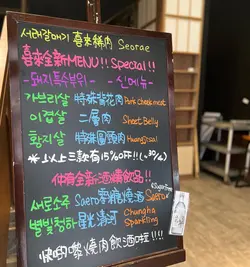 서래갈매기 喜來稀肉 Seorae
喜來全新MENU!! Special!!
-돼지특수부위- -신메뉴-
가브리살 特殊背花肉 Pork cheek meat
이겹살 二層肉 Short Belly
황지살 特殊圓頸肉 Hwangjisal
*以上三款有15%OFF!! (~30/4)
仲有全新酒禮飲品!!
새로소주 Saero零糖燒酒 Saero
별빛청하 星光清河 Chungha Sparkling
快啲嚟燒肉飲酒啦!!!